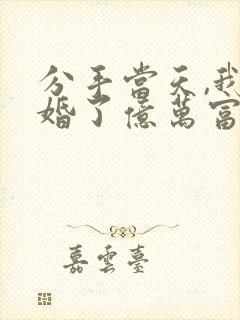 分手當天,我
婚了億萬富
嘉雲臺